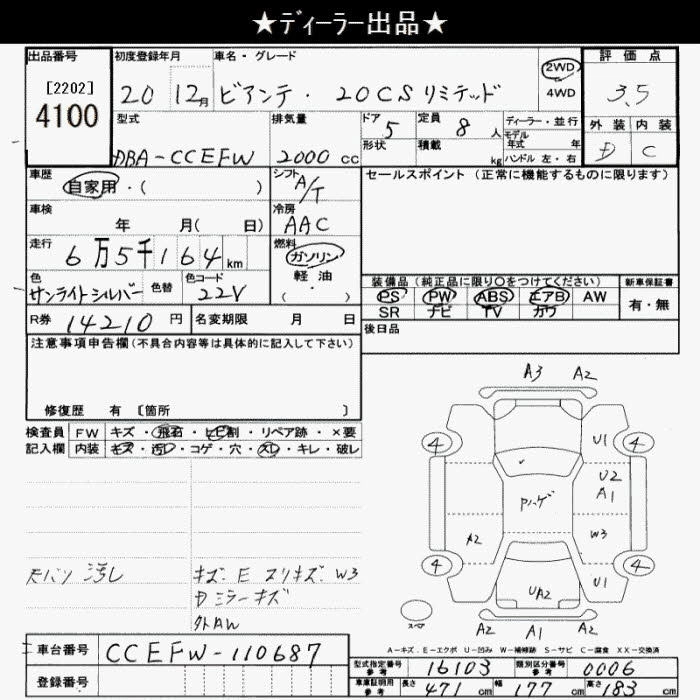 ★ディーラー出品★
出品番号 初度登録年月 車名・グレード 2WD 評価点
[2202] 4100 20 12月 ビアンテ・20CSリミテッド 4WD 3.5
型式 排気量 ドア 5 定員 8人 ディーラー・並行 外装 内装
DBA-CCEFW 2000cc 形状 積載 kg モデル年式 年 D C
ハンドル 左・右
車歴 自家用・( ) シフト A/T セールスポイント(正常に機能するものに限ります)
車検 年 月( 日) 冷房 AAC
走行 6万5千164km 燃料 ガソリン
軽油
( )
色 サンライトシルバー 色替 色コード 22V
装備品(純正品に限り○をつけてください) 新車保証書
PS PW ABS エアB AW 有・無
SR ナビ TV カワ
R券 14210円 名変期限 月 日 後日品
注意事項申告欄(不具合内容等は具体的に記入して下さい)
修復歴 有 [箇所 ]
検査員 FW キズ・飛石・ヒビ割・リペア跡・×要
記入欄 内装 キズ・汚レ・コゲ・穴・スレ・キレ・破レ
A3 A2
4 U1 4
U2
A1
Pハゲ
A2 W3
4 U1 4
UA2
スペア
A2 A1 A2
天バリ 汚レ キズ・E スリキズ・W3
ミラーキズ
外AW
A-キズ E-エクボ U-凹み W-補修跡 S-サビ C-腐食 XX-交換済
車台番号 CCEFW-110687
登録番号
型式指定番号 参考 16103 類別区分番号 参考 0006
車庫証明用 参考 長さ 471cm 幅 177cm 高さ 183cm